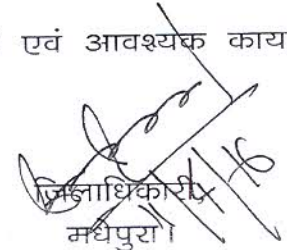 एवं आवश्यक काय
जिलाधिकारी,
मधेपुरा।